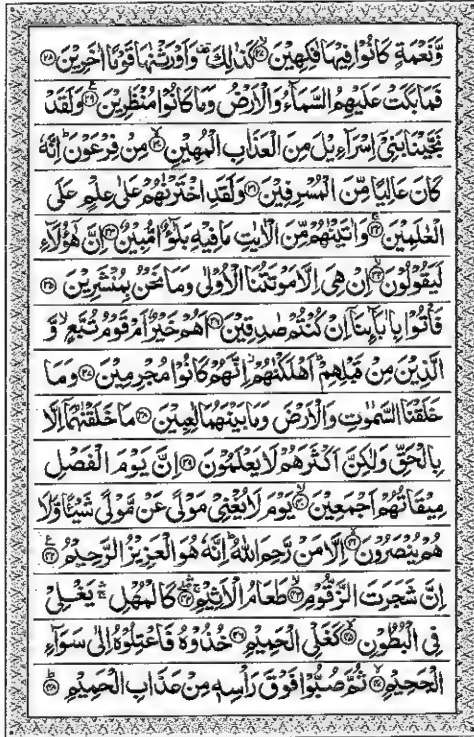 وَّنَعْمَةٍ كَانُوْا فِيْهَا فٰكِهِيْنَ ۙ﴿۲۷﴾ كَذٰلِكَ ۫ وَاَوْرَثْنٰهَا قَوْمًا اٰخَرِيْنَ ﴿۲۸﴾
فَمَا بَكَتْ عَلَيْهِمُ السَّمَآءُ وَالْاَرْضُ وَمَا كَانُوْا مُنْظَرِيْنَ ﴿۲۹﴾ وَلَقَدْ
نَجَّيْنَا بَنِيْٓ اِسْرَآءِيْلَ مِنَ الْعَذَابِ الْمُهِيْنِ ۙ﴿۳۰﴾ مِنْ فِرْعَوْنَ ؕ اِنَّهٗ
كَانَ عَالِيًا مِّنَ الْمُسْرِفِيْنَ ﴿۳۱﴾ وَلَقَدِ اخْتَرْنٰهُمْ عَلٰى عِلْمٍ عَلَى
الْعٰلَمِيْنَ ۚ﴿۳۲﴾ وَاٰتَيْنٰهُمْ مِّنَ الْاٰيٰتِ مَا فِيْهِ بَلٰٓؤٌا مُّبِيْنٌ ﴿۳۳﴾ اِنَّ هٰٓؤُلَآءِ
لَيَقُوْلُوْنَ ۙ﴿۳۴﴾ اِنْ هِيَ اِلَّا مَوْتَتُنَا الْاُوْلٰى وَمَا نَحْنُ بِمُنْشَرِيْنَ ﴿۳۵﴾
فَاْتُوْا بِاٰبَآئِنَآ اِنْ كُنْتُمْ صٰدِقِيْنَ ﴿۳۶﴾ اَهُمْ خَيْرٌ اَمْ قَوْمُ تُبَّعٍ ۙ وَّ
الَّذِيْنَ مِنْ قَبْلِهِمْ ؕ اَهْلَكْنٰهُمْ ؗ اِنَّهُمْ كَانُوْا مُجْرِمِيْنَ ﴿۳۷﴾ وَمَا
خَلَقْنَا السَّمٰوٰتِ وَالْاَرْضَ وَمَا بَيْنَهُمَا لٰعِبِيْنَ ﴿۳۸﴾ مَا خَلَقْنٰهُمَآ اِلَّا
بِالْحَقِّ وَلٰكِنَّ اَكْثَرَهُمْ لَا يَعْلَمُوْنَ ﴿۳۹﴾ اِنَّ يَوْمَ الْفَصْلِ
مِيْقَاتُهُمْ اَجْمَعِيْنَ ۙ﴿۴۰﴾ يَوْمَ لَا يُغْنِيْ مَوْلًى عَنْ مَّوْلًى شَيْـًٔا وَّلَا
هُمْ يُنْصَرُوْنَ ۙ﴿۴۱﴾ اِلَّا مَنْ رَّحِمَ اللّٰهُ ؕ اِنَّهٗ هُوَ الْعَزِيْزُ الرَّحِيْمُ ﴿۴۲﴾
اِنَّ شَجَرَتَ الزَّقُّوْمِ ۙ﴿۴۳﴾ طَعَامُ الْاَثِيْمِ ﴿۴۴﴾ كَالْمُهْلِ ۛۚ يَغْلِيْ
فِي الْبُطُوْنِ ۙ﴿۴۵﴾ كَغَلْيِ الْحَمِيْمِ ﴿۴۶﴾ خُذُوْهُ فَاعْتِلُوْهُ اِلٰى سَوَآءِ
الْجَحِيْمِ ۖ﴿۴۷﴾ ثُمَّ صُبُّوْا فَوْقَ رَاْسِهٖ مِنْ عَذَابِ الْحَمِيْمِ ؕ﴿۴۸﴾